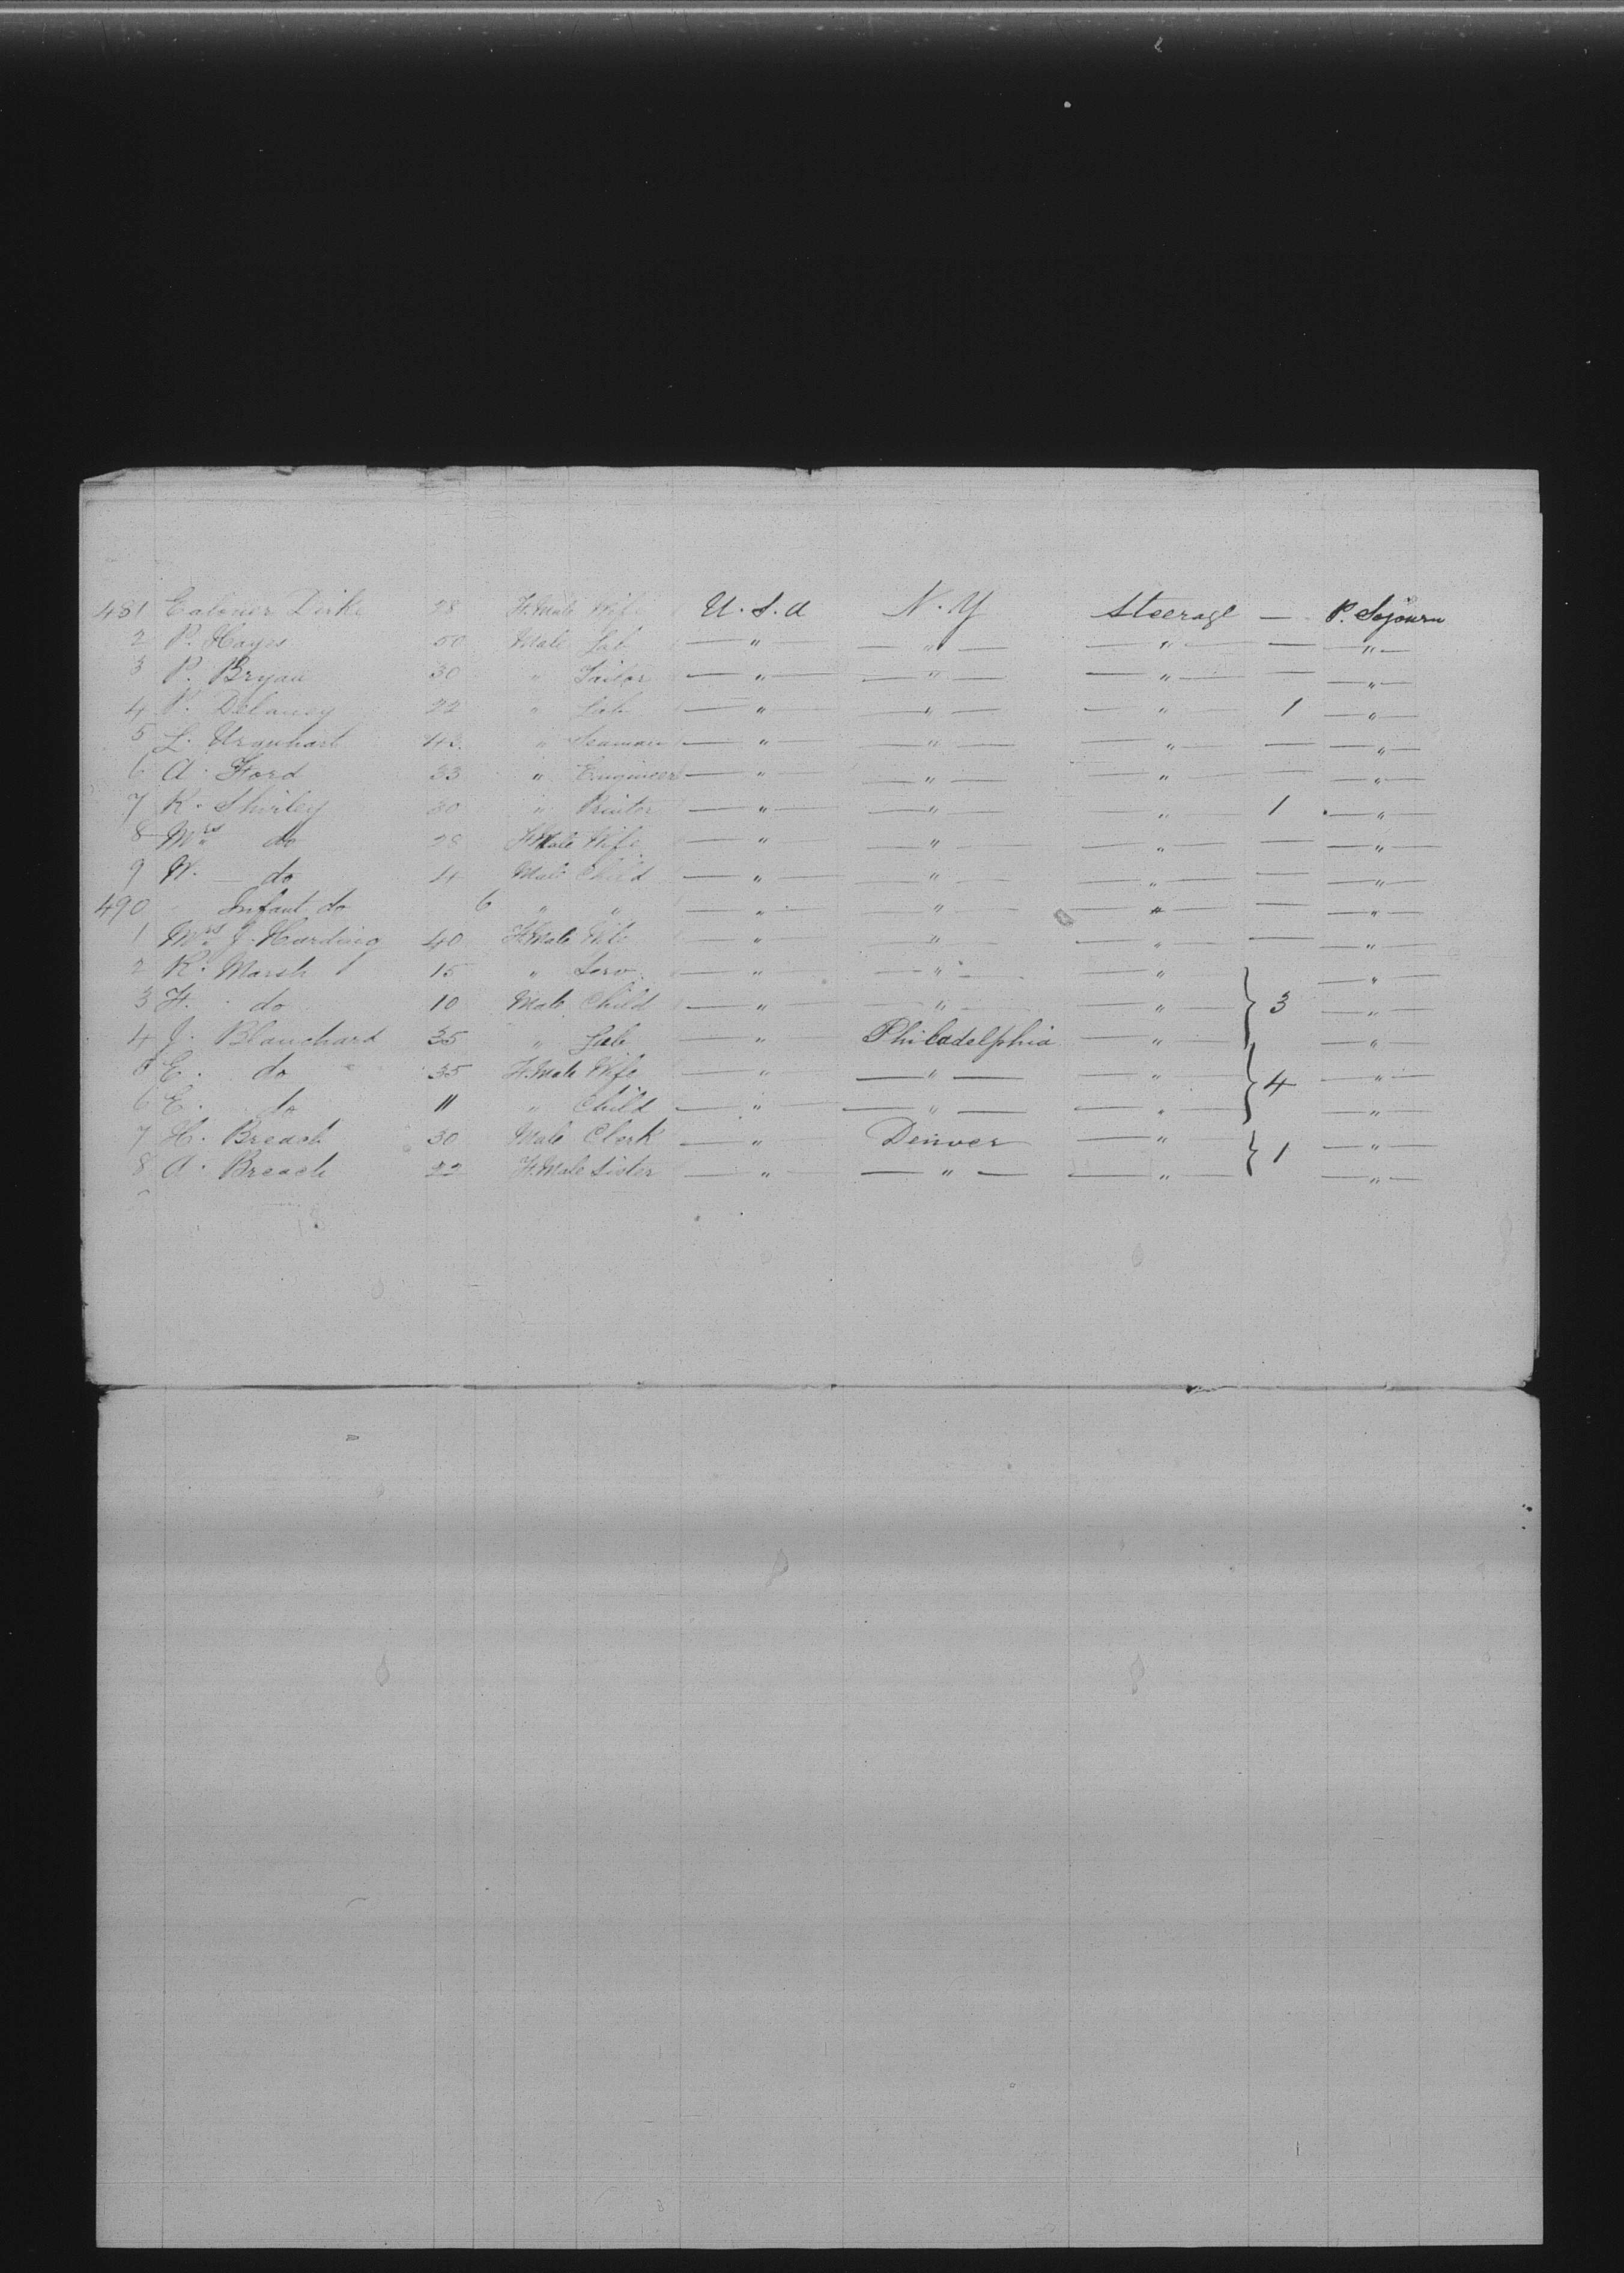 481 Dirke 28 F.Male Wife U.S.A N.Y Steerage — P. Sojourn
2 P. Hayes 50 Male Lab — " — — " — — " — — — " —
3 P. Bryan 30 " Tailor — " — — " — — " — — — " —
4 P. Delaney 22 " Lab — " — — " — — " — 1 — " —
5 L. Urquhart " Seaman — " — — " — — " — — — " —
6 A. Ford 33 " Engineer — " — — " — — " — — — " —
7 K. Shirley 30 " Printer — " — — " — — " — 1 — " —
8 Mrs do 28 F.Male Wife — " — — " — — " — — — " —
9 W. — do 4 Male Child — " — — " — — " — — — " —
490 Infant do 6 " " — " — — " — — " — — — " —
1 Mrs J. Harding 40 F.Male Wife — " — — " — — " — — — " —
2 R. Marsh 15 " Serv. — " — — " — — " — — " —
3 H. do 10 Male Child — " — — " — — " — } 3 — " —
4 J. Blanchard 35 " Lab — " — Philadelphia — " — — " —
5 E. do 35 F.Male Wife — " — — " — — " — } 4 — " —
6 E. do 11 " Child — " — — " — — " — — " —
7 H. Breach 30 Male Clerk — " — Denver — " — } 1 — " —
8 A. Breach 22 F.Male Sister — " — — " — — " — — " —